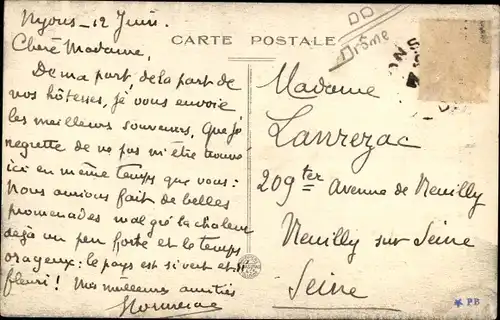 Nyons _ 12 Juin.
Chère Madame,
De ma part de la part de
vos hôtesses, je vous envoie
les meilleurs souvenirs. Que je
regrette de ne pas m'être trouvée
ici en même temps que vous :
nous aurions fait de belles
promenades malgré la chaleur
déjà un peu forte et le temps
orageux : le pays est si vert et si
fleuri ! Mes meilleures amitiés
CARTE POSTALE
Drôme
Madame
Lanrezac
209ter Avenue de Neuilly
Neuilly sur Seine
Seine
PB